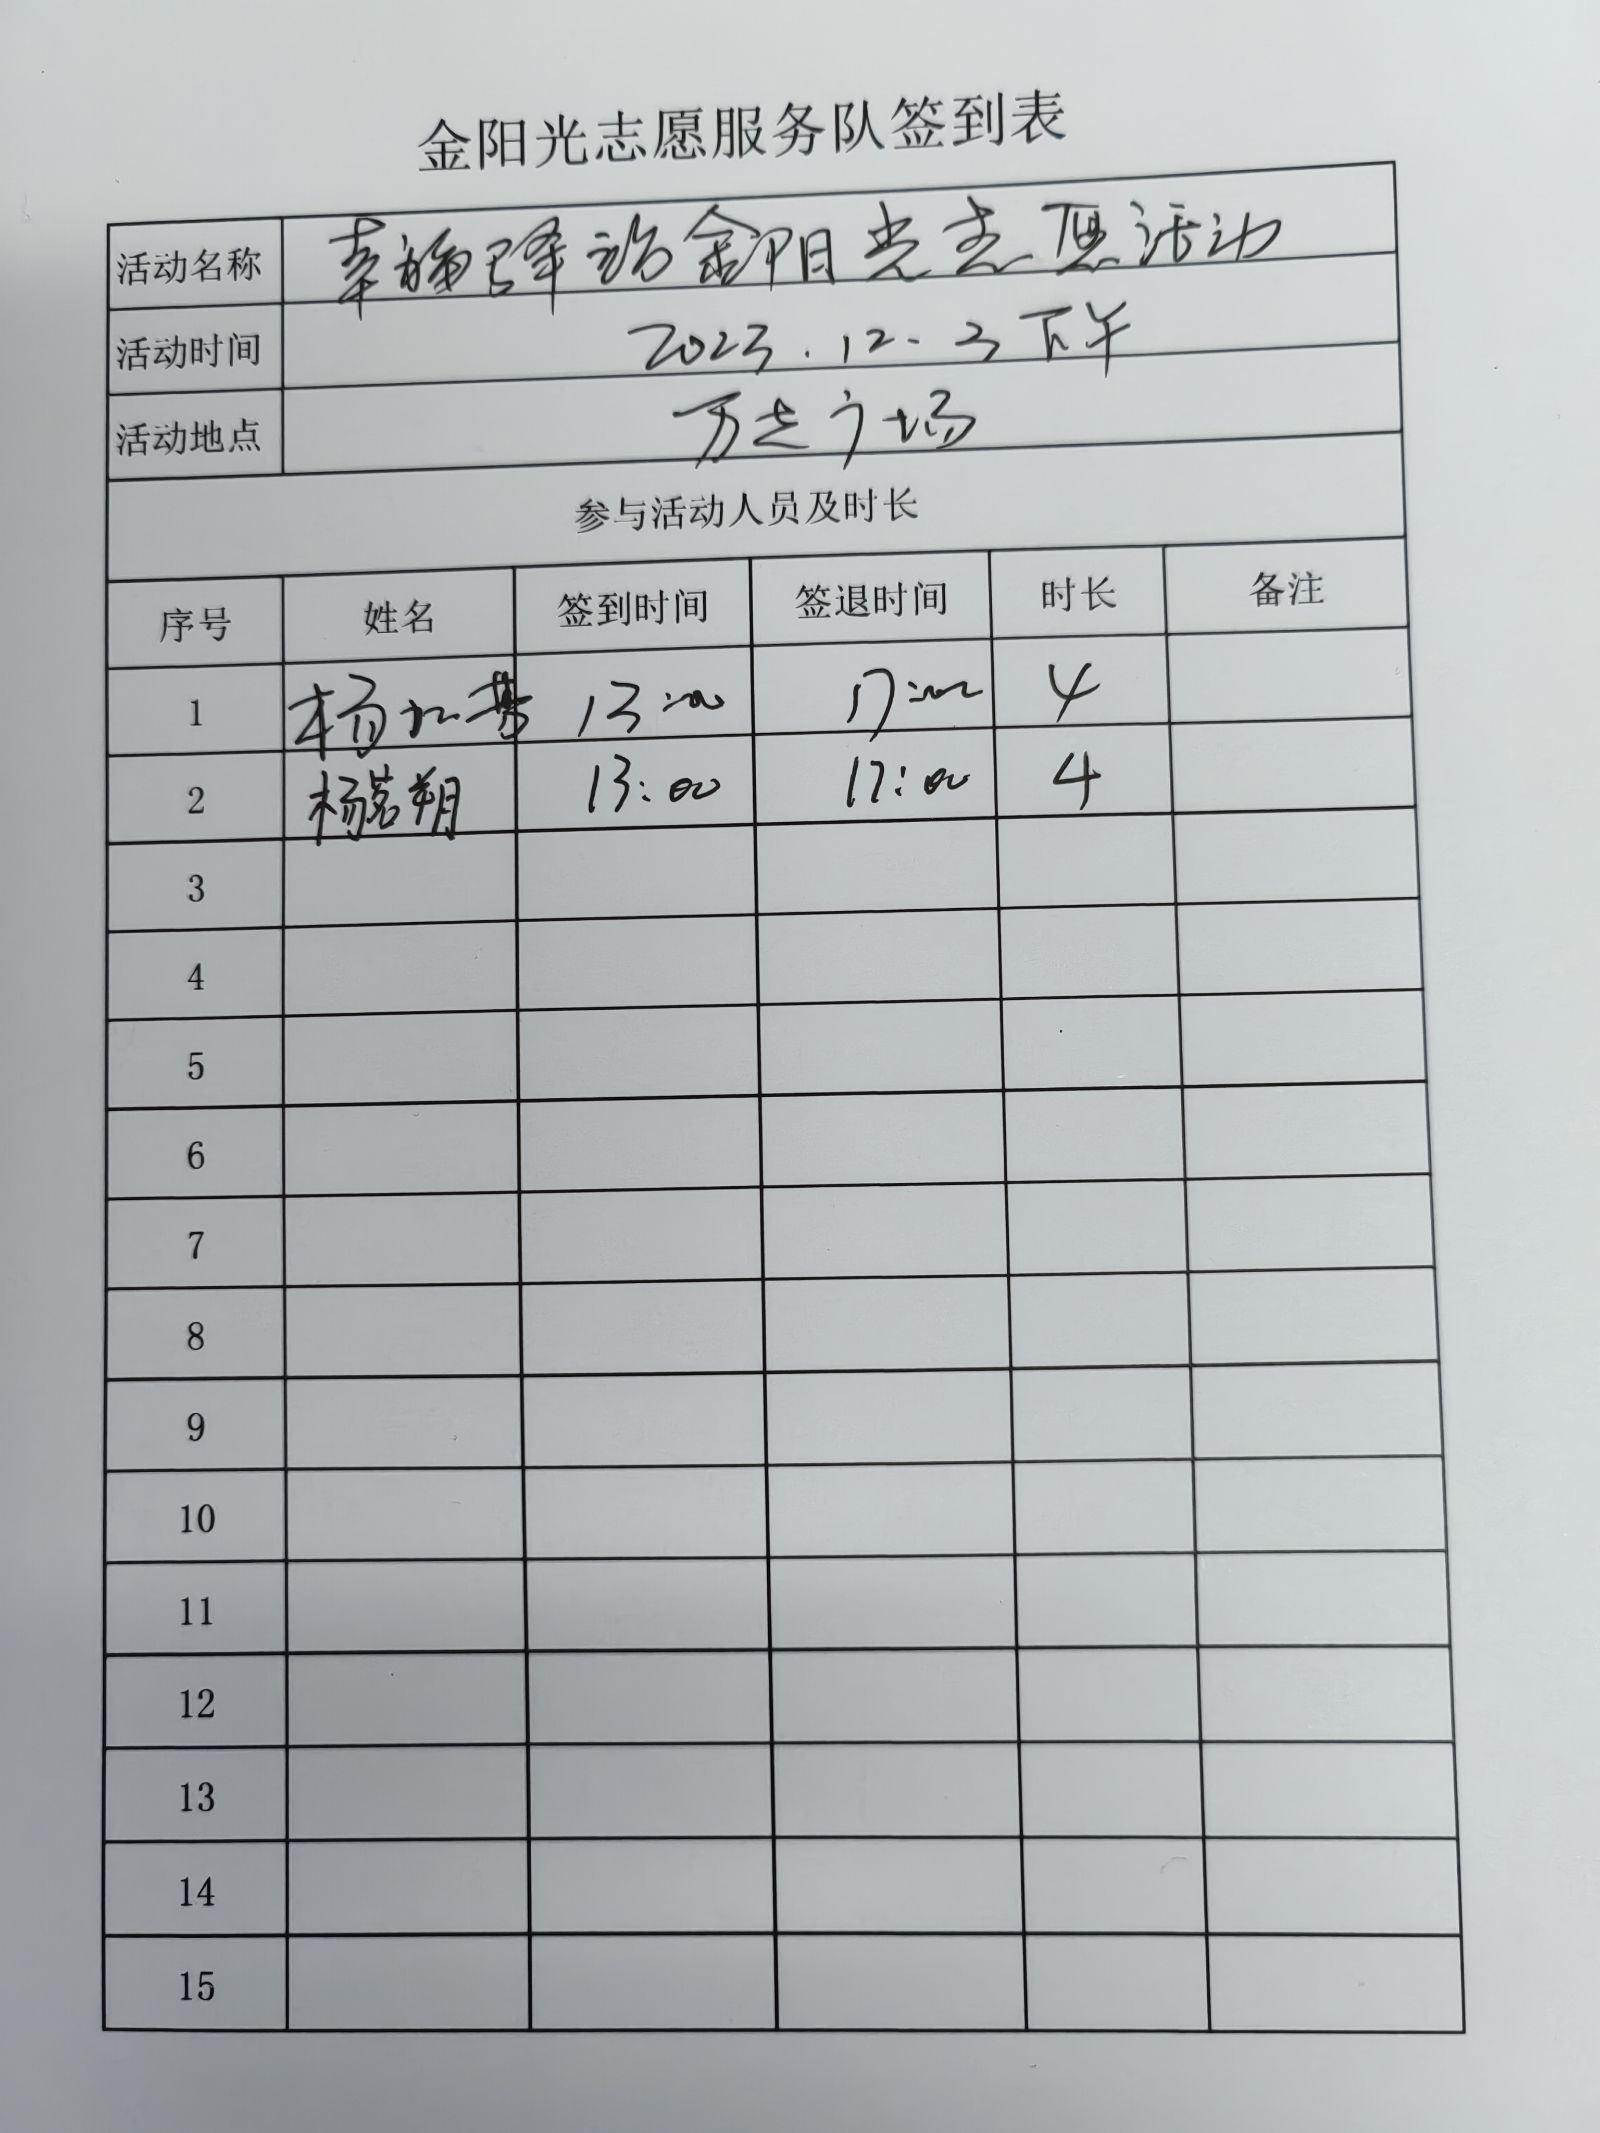 金阳光志愿服务队签到表
活动名称 幸福驿站金阳光志愿活动
活动时间 2023.12.3下午
活动地点 万达广场
参与活动人员及时长
序号 姓名 签到时间 签退时间 时长 备注
1 杨 13:00 17:00 4
2 杨茗朔 13:00 17:00 4
3
4
5
6
7
8
9
10
11
12
13
14
15